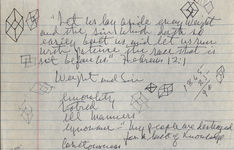 "Let us lay aside every weight
and the sin which doth so
easily beset us, and let us run
with patience the race that is
set before us." Hebrews 12:1
Weight and Sin
immorality
hatred
ill manners
ignorance - "My people are destroyed
for a lack of knowledge
covetousness